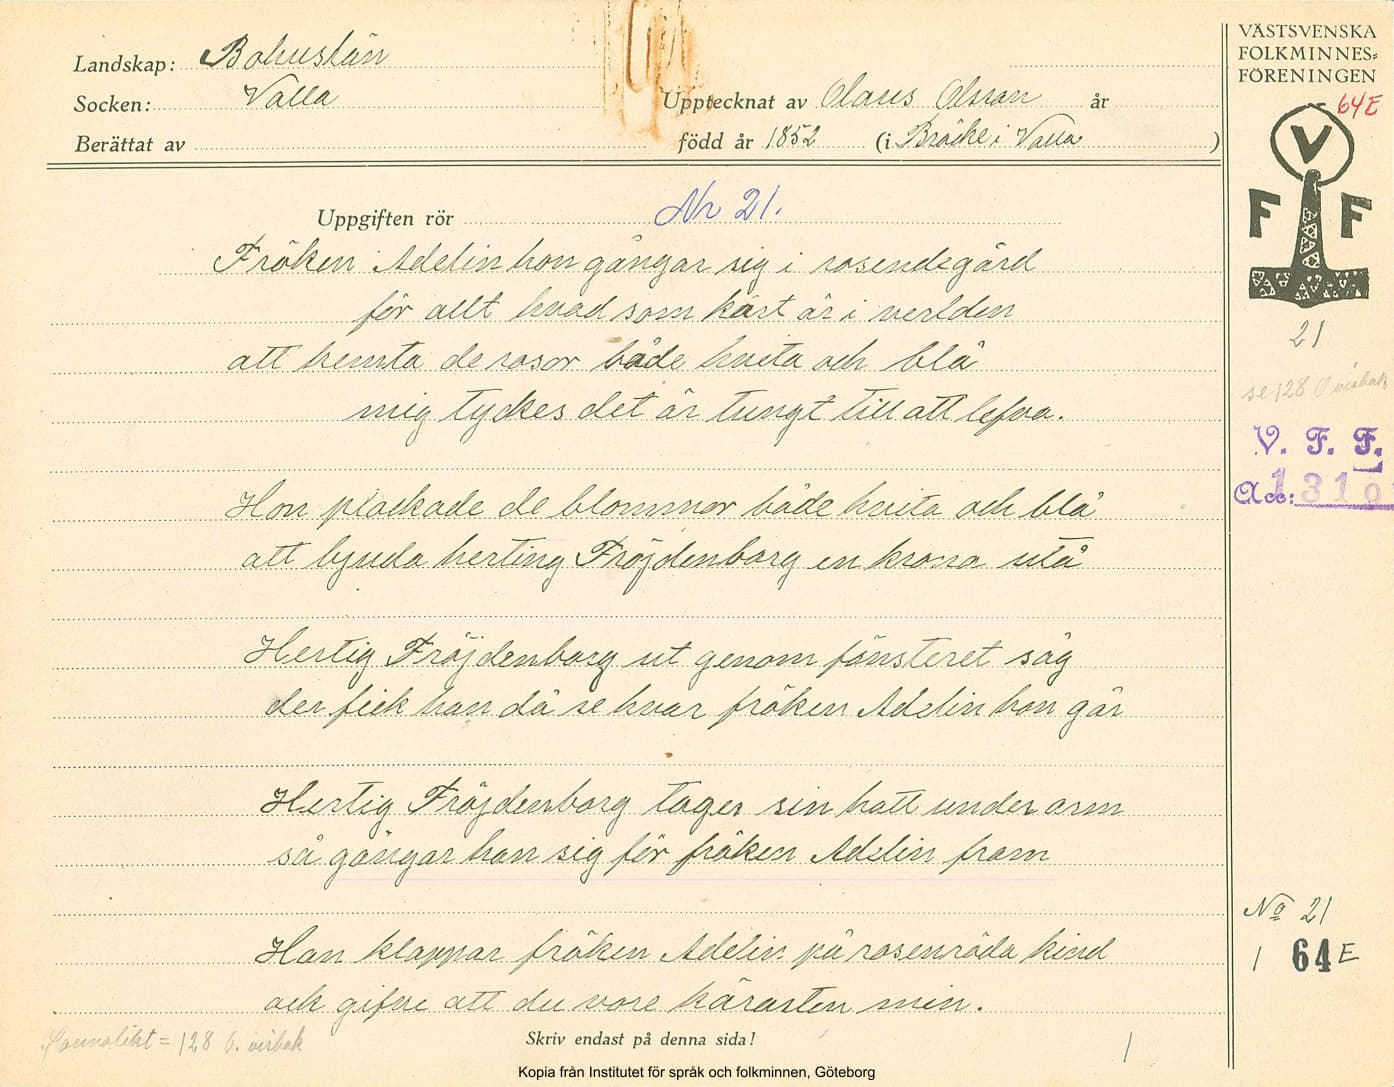 Landskap: Bohuslän
Socken: Valla
Berättat av
Upptecknat av Olaus Olsson år
född år 1852 (i Bräcke i Valla )
VÄSTSVENSKA
FOLKMINNES=
FÖRENINGEN
64E
V
F F
21
se 128 O visbok
V. F. F.
Acc: 1310
Uppgiften rör Nr 21.
Fröken Adelin hon gångar sig i rosendegård
för allt hvad som kärt är i verlden
att hemta de rosor både hvita och blå
mig tyckes det är tungt till att lefva.
Hon plockade de blommor både hvita och blå
att bynda herting Fröjdenborg en krona utå
Hertig Fröjdenborg ut genom fönsteret såg
der fick han då se hvar fröken Adelin hon går
Hertig Fröjdenborg tager sin hatt under arm
så gångar han sig för fröken Adelin fram
Han klappar fröken Adelin på rosenröda kind
ack gifve att du vore kärasten min.
No 21
1 64 E
= 128 O. visbok
Skriv endast på denna sida!
1
Kopia från Institutet för språk och folkminnen, Göteborg